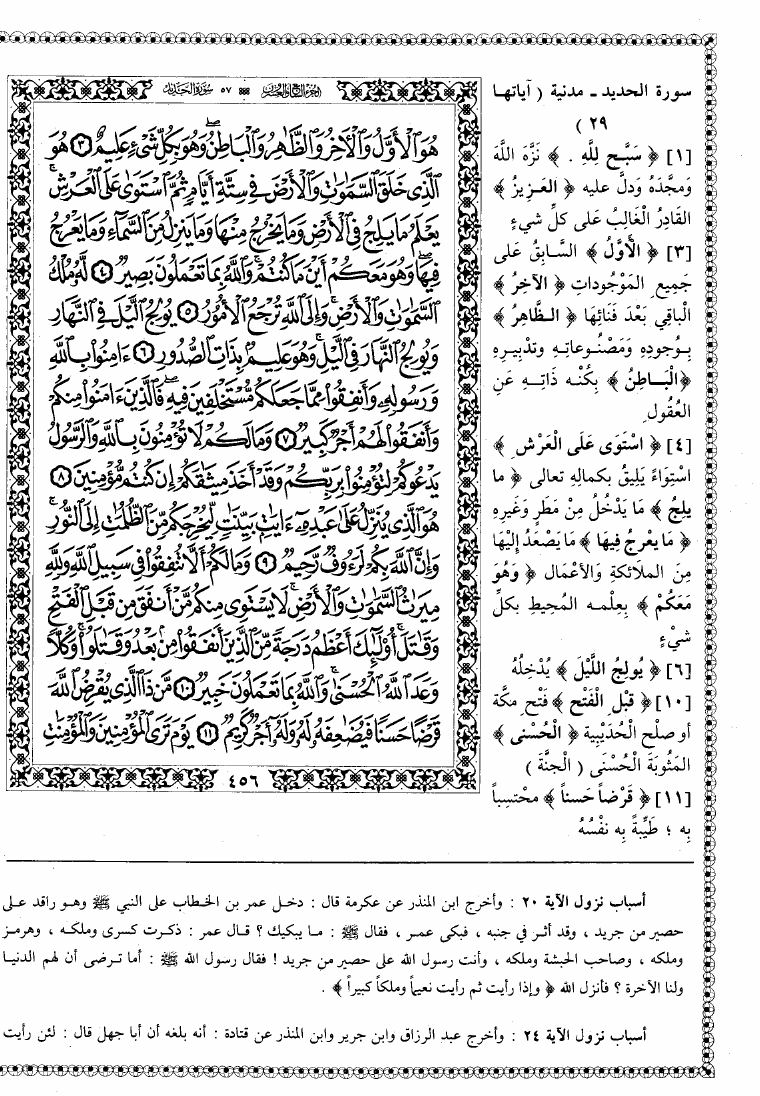 الجزء السابع والعشرون ٥٧ سورة الحديد
هُوَ الْأَوَّلُ وَالْآخِرُ وَالظَّاهِرُ وَالْبَاطِنُ وَهُوَ بِكُلِّ شَيْءٍ عَلِيمٌ ٣ هُوَ
الَّذِي خَلَقَ السَّمَوَاتِ وَالْأَرْضَ فِي سِتَّةِ أَيَّامٍ ثُمَّ اسْتَوَى عَلَى الْعَرْشِ
يَعْلَمُ مَا يَلِجُ فِي الْأَرْضِ وَمَا يَخْرُجُ مِنْهَا وَمَا يَنْزِلُ مِنَ السَّمَاءِ وَمَا يَعْرُجُ
فِيهَا وَهُوَ مَعَكُمْ أَيْنَ مَا كُنْتُمْ وَاللَّهُ بِمَا تَعْمَلُونَ بَصِيرٌ ٤ لَهُ مُلْكُ
السَّمَوَاتِ وَالْأَرْضِ وَإِلَى اللَّهِ تُرْجَعُ الْأُمُورُ ٥ يُولِجُ الَّيْلَ فِي النَّهَارِ
وَيُولِجُ النَّهَارَ فِي الَّيْلِ وَهُوَ عَلِيمٌ بِذَاتِ الصُّدُورِ ٦ ءَامِنُوا بِاللَّهِ
وَرَسُولِهِ وَأَنْفِقُوا مِمَّا جَعَلَكُمْ مُسْتَخْلَفِينَ فِيهِ فَالَّذِينَ ءَامَنُوا مِنْكُمْ
وَأَنْفَقُوا لَهُمْ أَجْرٌ كَبِيرٌ ٧ وَمَا لَكُمْ لَا تُؤْمِنُونَ بِاللَّهِ وَالرَّسُولُ
يَدْعُوكُمْ لِتُؤْمِنُوا بِرَبِّكُمْ وَقَدْ أَخَذَ مِيثَاقَكُمْ إِنْ كُنْتُمْ مُؤْمِنِينَ ٨
هُوَ الَّذِي يُنَزِّلُ عَلَى عَبْدِهِ ءَايَاتٍ بَيِّنَاتٍ لِيُخْرِجَكُمْ مِنَ الظُّلُمَاتِ إِلَى النُّورِ
وَإِنَّ اللَّهَ بِكُمْ لَرَءُوفٌ رَحِيمٌ ٩ وَمَا لَكُمْ أَلَّا تُنْفِقُوا فِي سَبِيلِ اللَّهِ وَلِلَّهِ
مِيرَاثُ السَّمَوَاتِ وَالْأَرْضِ لَا يَسْتَوِي مِنْكُمْ مَنْ أَنْفَقَ مِنْ قَبْلِ الْفَتْحِ
وَقَاتَلَ أُولَئِكَ أَعْظَمُ دَرَجَةً مِنَ الَّذِينَ أَنْفَقُوا مِنْ بَعْدُ وَقَاتَلُوا وَكُلًّا
وَعَدَ اللَّهُ الْحُسْنَى وَاللَّهُ بِمَا تَعْمَلُونَ خَبِيرٌ ١٠ مَنْ ذَا الَّذِي يُقْرِضُ اللَّهَ
قَرْضًا حَسَنًا فَيُضَاعِفَهُ لَهُ وَلَهُ أَجْرٌ كَرِيمٌ ١١ يَوْمَ تَرَى الْمُؤْمِنِينَ وَالْمُؤْمِنَاتِ
٤٥٦
سورة الحديد - مدنية ( آياتها
٢٩ )
[١] ﴿ سَبَّحَ لِلَّهِ . ﴾ نَزَّهَ اللَّهَ
وَمَجَّدَهُ وَدلَّ عليه ﴿ العَزِيزُ ﴾
القَادِرُ الْغَالِبُ عَلى كلِّ شيءٍ
[٣] ﴿ الأَوَّلُ ﴾ السَّابِقُ عَلى
جَمِيعِ المَوْجُودَاتِ ﴿ الآخِرُ ﴾
الْباقِي بَعْدَ فَنَائِهَا ﴿ الظَّاهِرُ ﴾
بِوُجودِهِ وَمَصْنُوعاتِهِ وتدْبِيرِهِ
﴿الْبَاطِنُ ﴾ بِكُنْهِ ذَاتِهِ عَنِ
العُقُولِ
[٤] ﴿ اسْتَوَى عَلَى الْعَرْشِ ﴾
اسْتِوَاءً يَلِيقُ بكمالِهِ تعالى ﴿ ما
يلِجُ ﴾ مَا يَدْخُلُ مِنْ مَطَرٍ وَغَيرِهِ
﴿ مَا يعْرجُ فِيهَا ﴾ مَا يَصْعَدُ إِلَيْهَا
مِنَ الملائكةِ والأعْمالِ ﴿ وَهُوَ
مَعَكُمْ ﴾ بِعِلْمِه المُحِيطِ بكلِّ
شَيْءٍ
[٦] ﴿ يُولِجُ اللَّيْلَ ﴾ يُدْخِلُهُ
[١٠] ﴿ قَبْلِ الْفَتْحِ ﴾ فَتْحِ مكَّة
أو صلْحِ الْحُدَيْبِيةِ ﴿ الْحُسْنى ﴾
المَثُوبَةَ الْحُسْنَى ( الْجنَّةَ )
[١١] ﴿ قَرْضاً حَسناً ﴾ محْتسِباً
بِه ؛ طَيِّبَةً بِه نفْسُهُ
أسباب نزول الآية ٢٠ : وأخرج ابن المنذر عن عكرمة قال : دخل عمر بن الخطاب على النبي ﷺ وهو راقد على
حصير من جريد ، وقد أثر في جنبه ، فبكى عمر ، فقال ﷺ : ما يبكيك ؟ قال عمر : ذكرت كسرى وملكه ، وهرمز
وملكه ، وصاحب الحبشة وملكه ، وأنت رسول الله على حصير من جريد ! فقال رسول الله ﷺ : أما ترضى أن لهم الدنيا
ولنا الآخرة ؟ فأنزل الله ﴿ وإذا رأيت ثم رأيت نعيماً وملكاً كبيراً ﴾ .
أسباب نزول الآية ٢٤ : وأخرج عبد الرزاق وابن جرير وابن المنذر عن قتادة : أنه بلغه أن أبا جهل قال : لئن رأيت